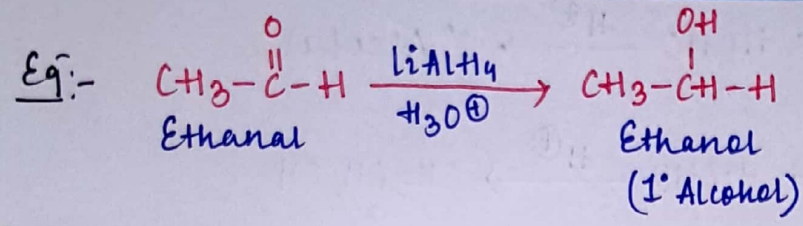 Eg:- CH3-C(=O)-H LiAlH4 / H3O⊕ → CH3-CH(OH)-H
Ethanal Ethanol
(1° Alcohol)